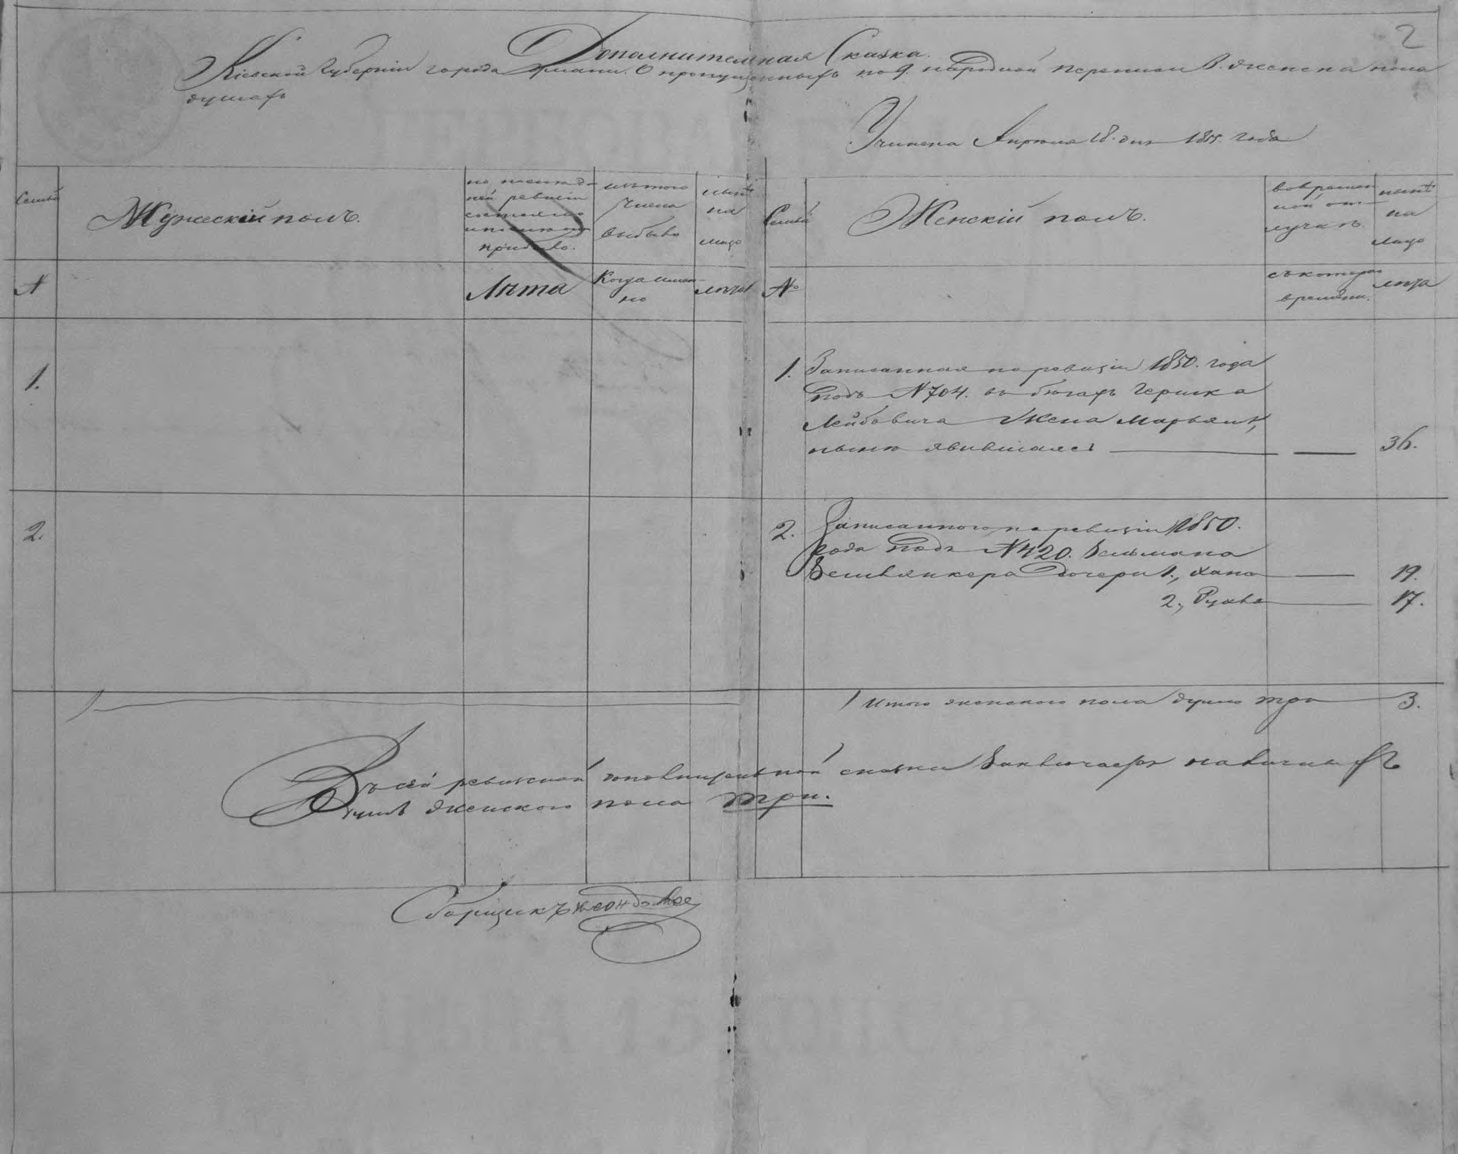 2
Дополнительная Сказка
Кіевской Губерніи города Умани. О пропущенныхъ по 9. народной переписи В. женска пола
душахъ
Учинена Апреля 18. дня года
Семьи
Мужескій полъ.
ней ревизіи
состояло
прибыло.
изъ того
числа
выбыло
нынѣ
на
лицо
Семьи
Женскій полъ.
во времен
ной от
лучкѣ
нынѣ
на
лицо
N
Лѣта
Когда имен
но
лѣта
№
съ котораго
времени.
лѣта
1.
1. Записанная по ревизіи 1850. года
подъ N 704. въ бѣгахъ Гершка
Лейбовича Жена Марьямъ,
нынѣ явившаяся 36.
2.
2. Записанного по ревизіи 1850.
года подъ N 420. Зельмана
дочери 1., Хана 19.
2., Рухля 17.
Итого женского пола душъ три 3.
Въ сей ревизской дополнительной сказки Заключается наличныхъ
душъ женского пола три.
Сборщикъ